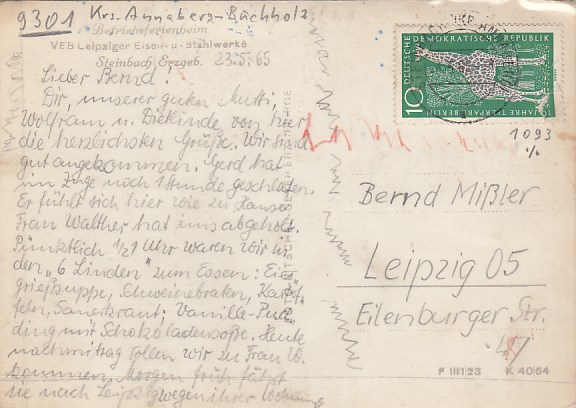 9301 Krs. Annaberg-Buchholz
Betriebsferienheim
VEB Leipziger Eisen- u. Stahlwerke
Steinbach, Erzgeb. 23.5.65
Lieber Bernd!
Dir, unserer guten Mutti,
Wolfram u. Dieklinde von hier
die herzlichsten Grüße. Wir sind
gut angekommen. Gerd hat
im Zuge noch 1 Stunde geschlafen.
Er fühlt sich hier wie zu Hause
Frau Walther hat uns abgeholt.
Pünktlich 1/21 Uhr waren wir in
den "6 Linden" zum Essen: Ein-
grießsuppe, Schweinebraten, Kartof-
feln, Sauerkraut; Vanille-Pud-
ding mit Schokoladensoße. Heute
nachmittag sollen wir zu Frau W.
kommen. Morgen früh fährt
sie nach Leipzig wegen ihrer Wohnung
DEUTSCHE DEMOKRATISCHE REPUBLIK
10 JAHRE TIERPARK BERLIN
10
1093
Bernd Mißler
Leipzig 05
Eilenburger Str.
F III 1 23 K 40/64